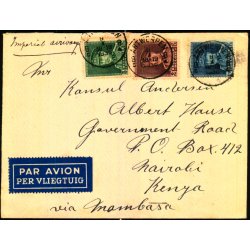 Imperial airways
Mr
Konsul Andersen
Albert House
Government Road
P.O. Box 412
Nairobi
Kenya
via Mombasa
PAR AVION
PER VLIEGTUIG